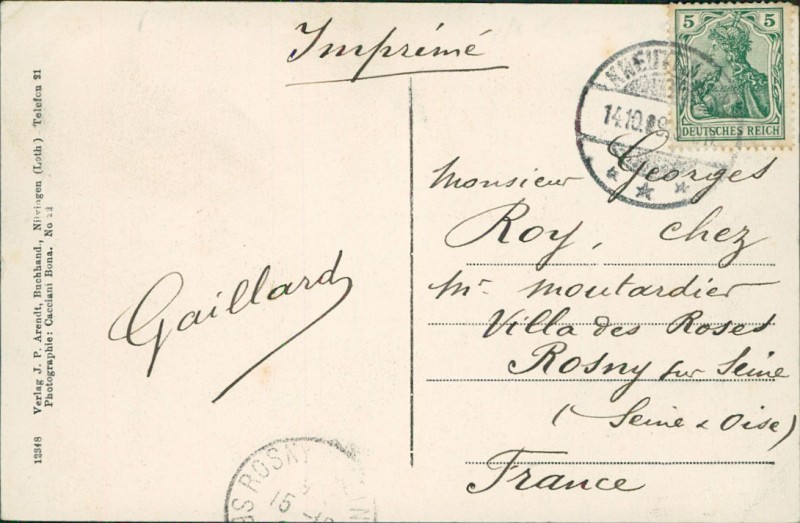 Imprimé
5 5
DEUTSCHES REICH
14.10.
Monsieur Georges
Roy, chez
Mr Moutardier
Villa des Roses
Rosny sur Seine
(Seine & Oise)
France
Gaillard
ROSNY
15
12348 Verlag J. P. Arendt, Buchhand., Nilvingen (Loth) Telefon 21
Photographie: Cacciani Bona. No